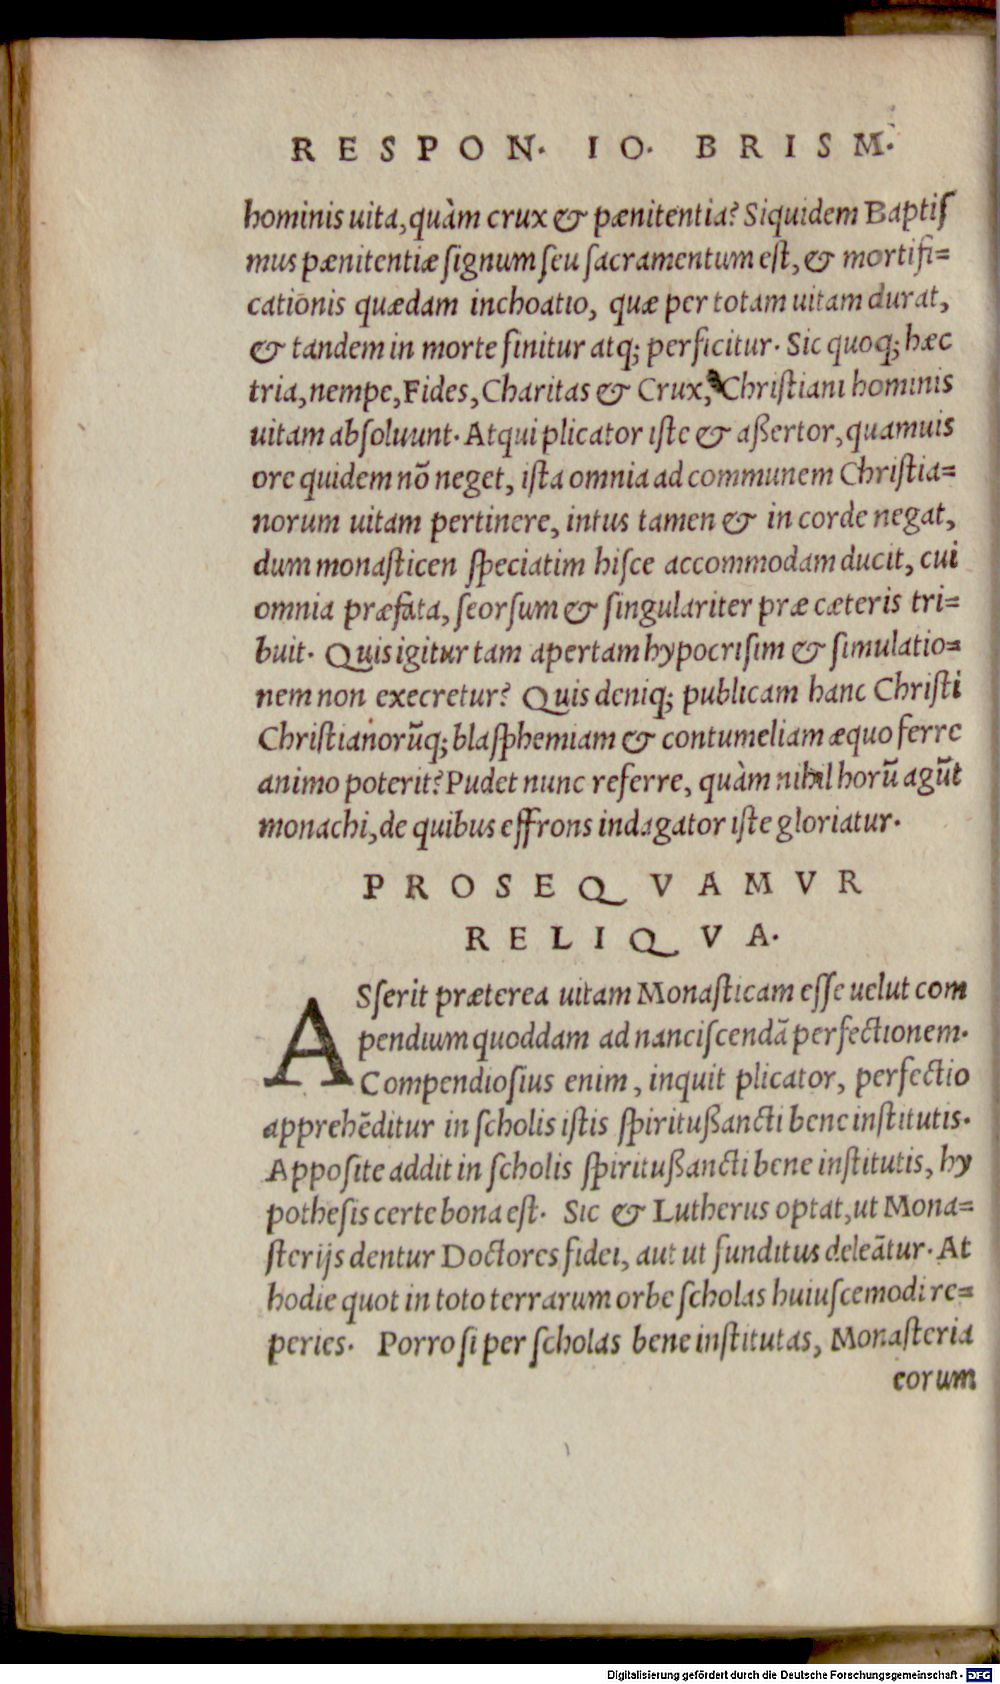 RESPON. IO. BRISM.
hominis uita, quàm crux & pænitentia? Siquidem Baptiſ
mus pænitentiæ ſignum ſeu ſacramentum eſt, & mortifi=
cationis quædam inchoatio, quæ per totam uitam durat,
& tandem in morte finitur atq; perficitur. Sic quoq; hæc
tria, nempe, Fides, Charitas & Crux, Chriſtiani hominis
uitam abſoluunt. Atqui plicator iſte & aßertor, quamuis
ore quidem nõ neget, iſta omnia ad communem Chriſtia=
norum uitam pertinere, intus tamen & in corde negat,
dum monaſticen ſpeciatim hiſce accommodam ducit, cui
omnia præfata, ſeorſum & ſingulariter præ cæteris tri=
buit. Quis igitur tam apertam hypocriſim & ſimulatio=
nem non execretur? Quis deniq; publicam hanc Chriſti
Chriſtianorũq; blaſphemiam & contumeliam æquo ferre
animo poterit? Pudet nunc referre, quàm nihil horũ agũt
monachi, de quibus effrons indagator iſte gloriatur.
PROSEQVAMVR
RELIQVA.
ASſerit præterea uitam Monaſticam eſſe uelut com
pendium quoddam ad nanciſcendã perfectionem.
Compendioſius enim, inquit plicator, perfectio
apprehẽditur in ſcholis iſtis ſpiritußancti bene inſtitutis.
Appoſite addit in ſcholis ſpiritußancti bene inſtitutis, hy
potheſis certe bona eſt. Sic & Lutherus optat, ut Mona=
ſterijs dentur Doctores fidei, aut ut funditus deleãtur. At
hodie quot in toto terrarum orbe ſcholas huiuſcemodi re=
peries. Porro ſi per ſcholas bene inſtitutas, Monaſteria
eorum
Digitalisierung gefördert durch die Deutsche Forschungsgemeinschaft - DFG